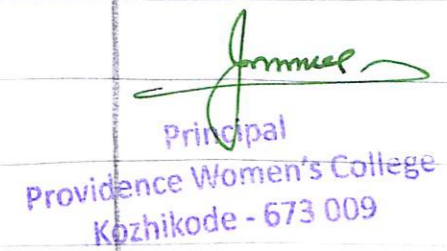 Principal
Providence Women's College
Kozhikode - 673 009